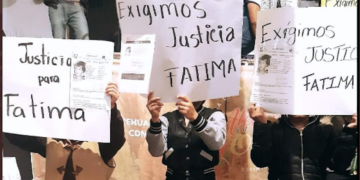 Justicia
para
Fatima
Exigimos
Justicia
FATIMA
Exígimos
JUSTICIA
FATIMA